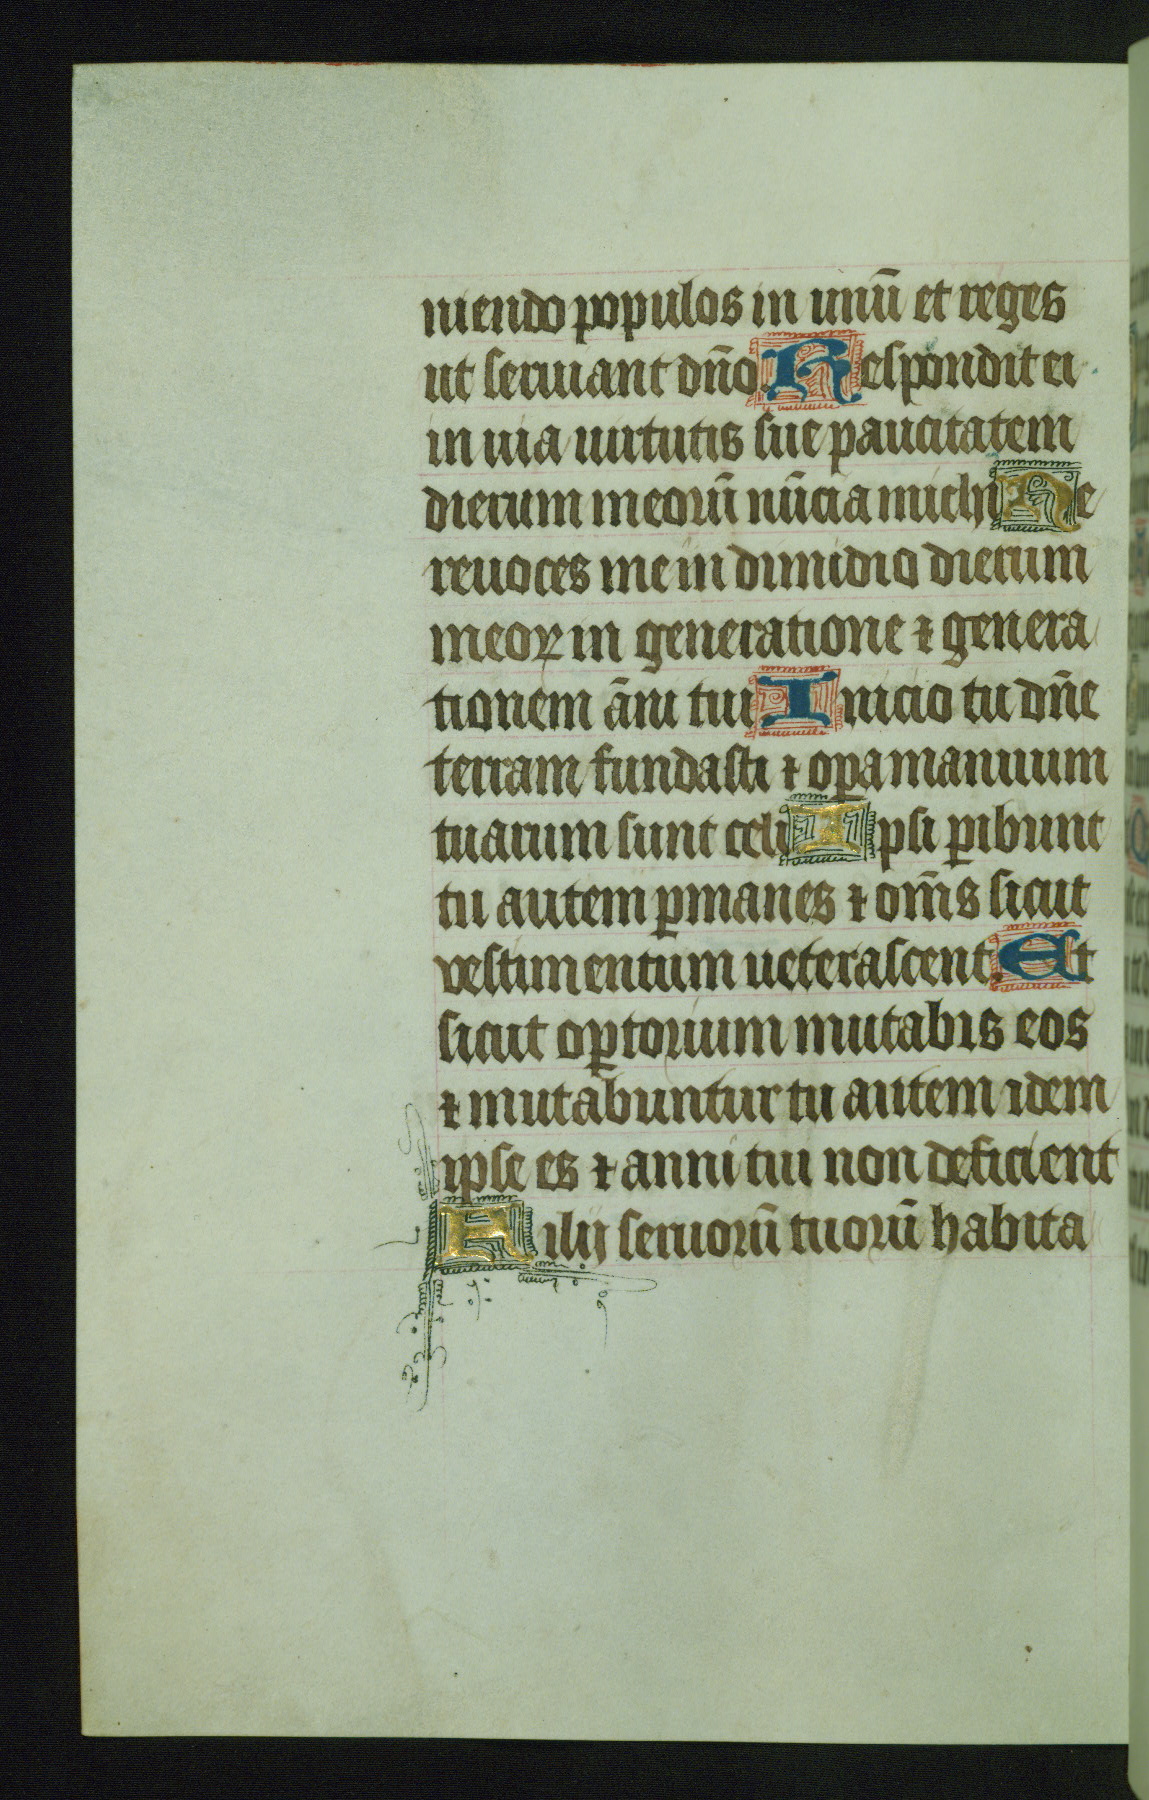 niendo populos in unū et reges
ut seruiant dn̄o. Respondit ei
in uia uirtutis sue paucitatem
dierum meorū nūcia michi Ne
reuoces me in dimidio dierum
meoꝝ in generatione ⁊ genera
tionem āni tui Inicio tu dn̄e
terram fundasti ⁊ oꝑa manuum
tuarum sunt celi Ipsi ꝑibunt
tu autem ꝑmanes ⁊ om̄s sicut
vestimentum ueterascent. Et
sicut oꝑtorium mutabis eos
⁊ mutabuntur tu autem idem
ipse es ⁊ anni tui non deficient
Filij seruorū tuorū habita